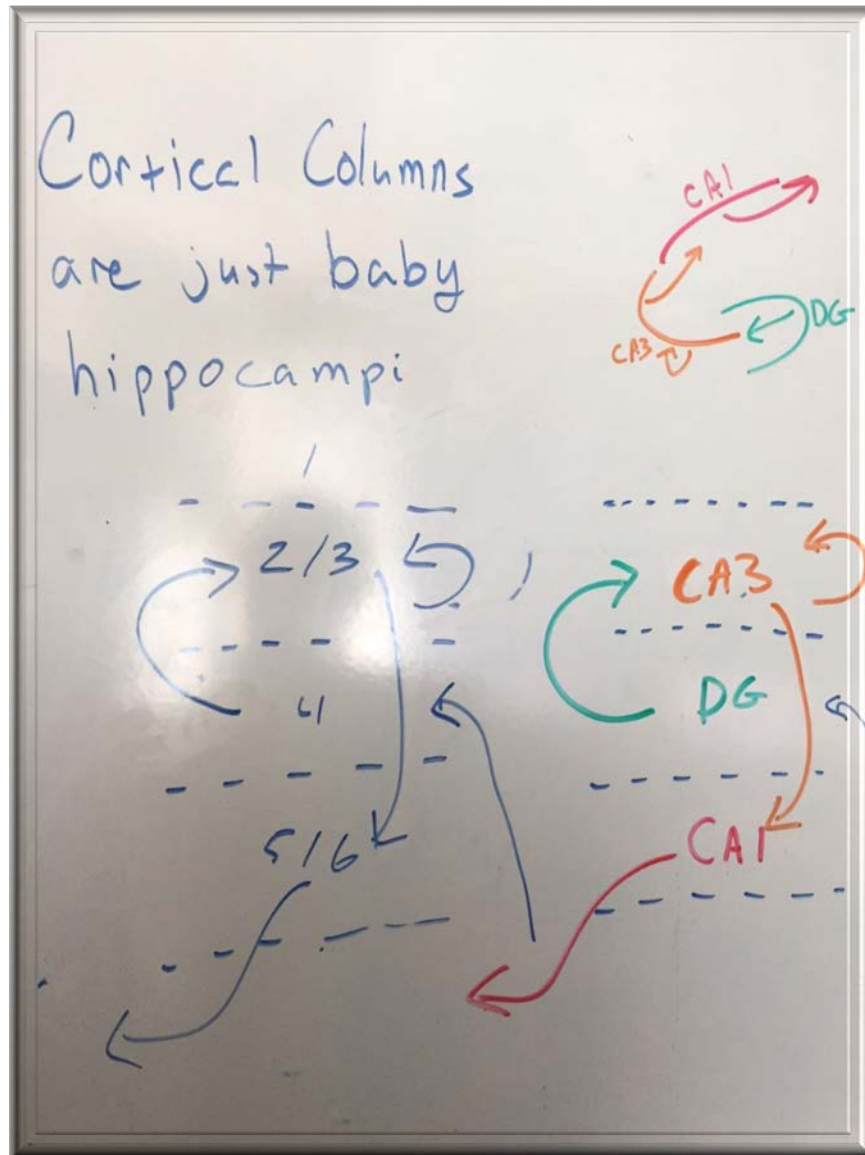 Cortical Columns
are just baby
hippocampi
CA1
DG
CA3
2/3
4
5/6
CA3
DG
CA1